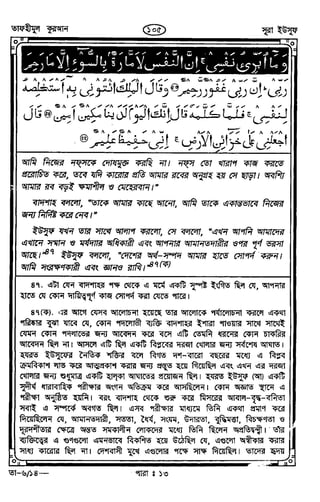 তাফহীমুল কুরআন
১০৫
সূরা ইউসুফ
وَمَآ أُبَرِّئُ نَفْسِىٓ ۚ إِنَّ ٱلنَّفْسَ لَأَمَّارَةٌۢ بِٱلسُّوٓءِ إِلَّا مَا رَحِمَ
رَبِّىٓ ۚ إِنَّ رَبِّى غَفُورٌ رَّحِيمٌ ۝ وَقَالَ ٱلْمَلِكُ ٱئْتُونِى بِهِۦٓ أَسْتَخْلِصْهُ
لِنَفْسِى ۖ فَلَمَّا كَلَّمَهُۥ قَالَ إِنَّكَ ٱلْيَوْمَ لَدَيْنَا مَكِينٌ أَمِينٌ ۝ قَالَ
ٱجْعَلْنِى عَلَىٰ خَزَآئِنِ ٱلْأَرْضِ ۖ إِنِّى حَفِيظٌ عَلِيمٌ ۝
আমি নিজের নফ্‌সকে দোষমুক্ত করছি না। নফস তো খারাপ কাজ করতে
প্ররোচিত করে, তবে যদি কারোর প্রতি আমার রবের অনুগ্রহ হয় সে ছাড়া। অবশ্যি
আমার রব বড়ই ক্ষমাশীল ও মেহেরবান।"
বাদশাহ বললো, "তাকে আমার কাছে আনো, আমি তাকে একান্তভাবে নিজের
জন্য নির্দিষ্ট করে নেব।"
ইউসুফ যখন তার সাথে আলাপ করলো, সে বললো, "এখন আপনি আমাদের
এখানে সম্মান ও মর্যাদার অধিকারী এবং আপনার আমানতদারীর ওপর পূর্ণ ভরসা
আছে।"৪৭ ইউসুফ বললো, "দেশের অর্থ-সম্পদ আমার হাতে সোপর্দ করুন।
আমি সংরক্ষণকারী এবং জ্ঞানও রাখি।"৪৭(ক)
৪৭. এটা যেন বাদশাহর পক্ষ থেকে এ মর্মে একটি সুস্পষ্ট ইংগিত ছিল যে, আপনার
হাতে যে কোন দায়িত্বপূর্ণ কাজ সোপর্দ করা যেতে পারে।
৪৭(ক). এর আগে যেসব আলোচনা হয়েছে তার আলোকে পর্যালোচনা করলে একথা
পরিষ্কার বুঝা যাবে যে, কোন পদলোভী ব্যক্তি বাদশাহর ইশারা পাওয়ার সাথে সাথেই
যেমন কোন পদলাভের জন্য আবেদন করে বসে এটি তেমনি ধরনের কোন চাকরির
আবেদন ছিল না। আসলে এটি ছিল একটি বিপ্লবের দরজা খোলার জন্য সর্বশেষ আঘাত।
হযরত ইউসুফের নৈতিক শক্তির বলে বিগত দশ-বারো বছরের মধ্যে এ বিপ্লব
ক্রমবিকাশ লাভ করে আত্মপ্রকাশ করার জন্য প্রস্তুত হয়ে গিয়েছিল এবং এখন এর দরজা
খোলার জন্য শুধুমাত্র একটি হালকা আঘাতের প্রয়োজন ছিল। হযরত ইউসুফ (আ) একটি
সুদীর্ঘ ধারাবাহিক পরীক্ষার অংগন অতিক্রম করে আসছিলেন। কোন অজ্ঞাত স্থানে এ
পরীক্ষা অনুষ্ঠিত হয়নি। বরং বাদশাহ থেকে শুরু করে মিসরের আবাল-বৃদ্ধ-বনিতা
সবাই এ সম্পর্কে অবগত ছিল। এসব পরীক্ষার মাধ্যমে তিনি একথা প্রমাণ করে
দিয়েছিলেন যে, আমানতদারী, সততা, ধৈর্য, সংযম, উদারতা, বুদ্ধিমত্তা, বিচক্ষণতা ও
দূরদর্শীতার ক্ষেত্রে অন্তত সমকালীন লোকদের মধ্যে তিনি ছিলেন অপ্রতিদ্বন্দ্বী। তাঁর
ব্যক্তিত্বের এ গুণগুলো এমনভাবে বিকশিত হয়ে উঠেছিল যে, এগুলো অস্বীকার করার
সাধ্য কারোর ছিল না। দেশবাসী মুখে এগুলোর পক্ষে সাক্ষ দিয়েছিল। তাদের হৃদয়
তা-৬/১৪—
পারা ঃ ১৩